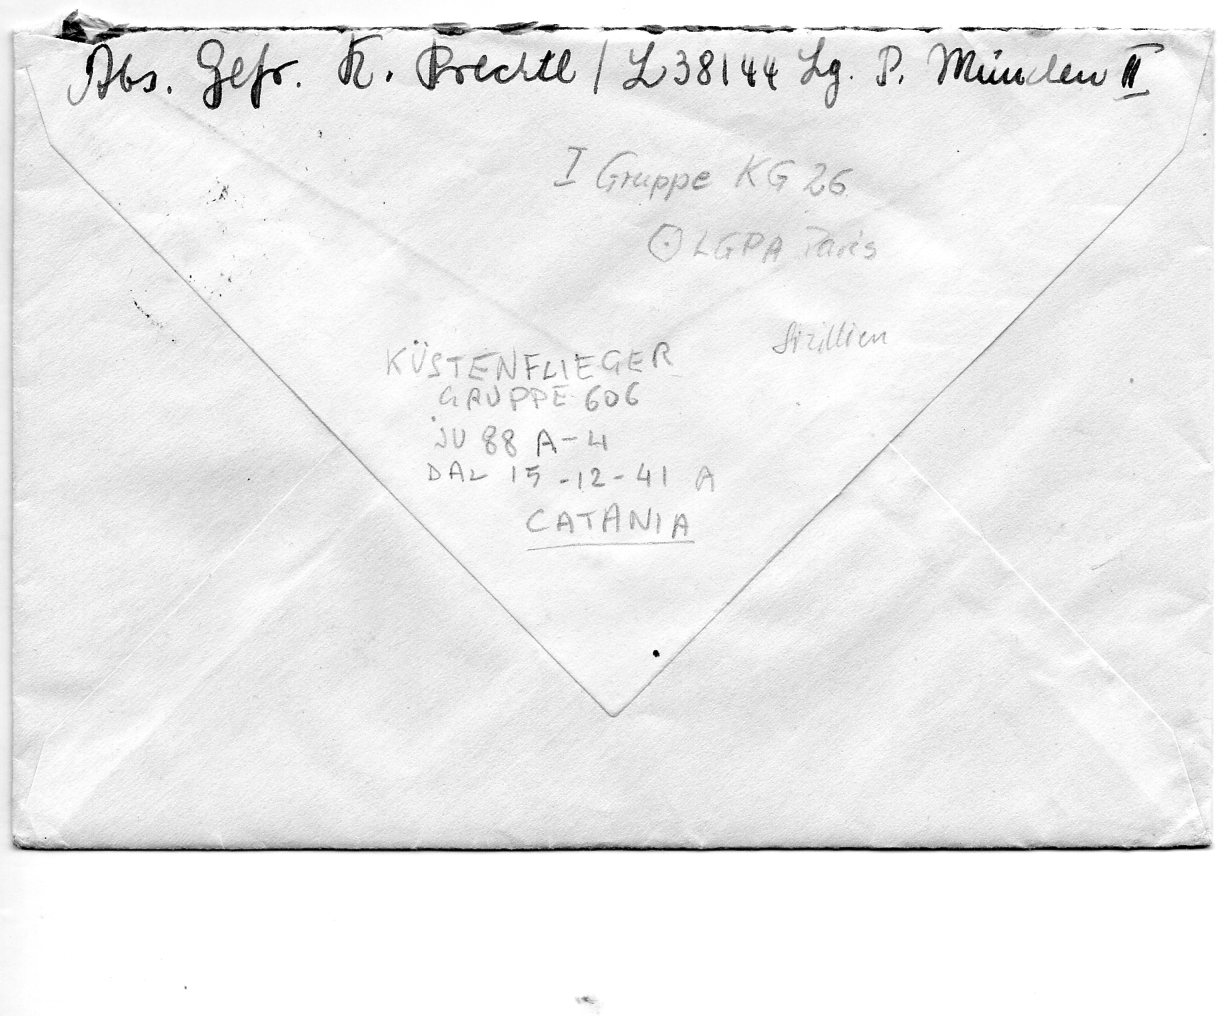 Abs. Gefr. K. Brechtl / L 38144 Lg. P. München II
I Gruppe KG 26
LGPA Paris
Sizillien
KÜSTENFLIEGER
GRUPPE 606
JU 88 A-4
DAL 15-12-41 A
CATANIA